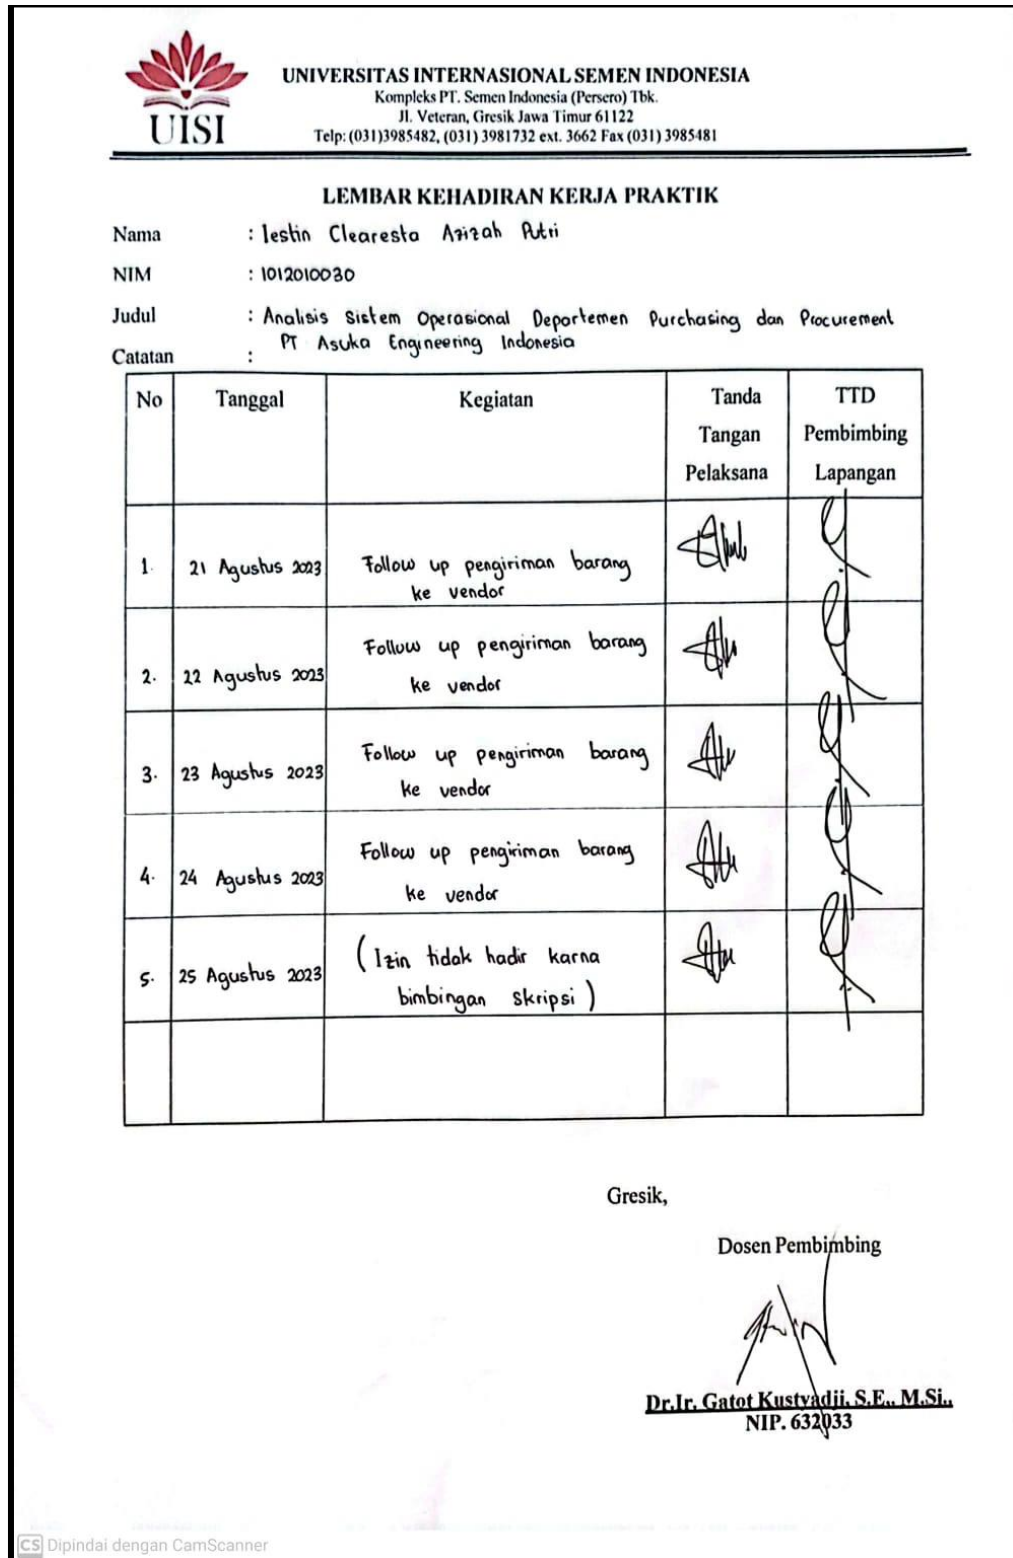 UISI
UNIVERSITAS INTERNASIONAL SEMEN INDONESIA
Kompleks PT. Semen Indonesia (Persero) Tbk.
Jl. Veteran, Gresik Jawa Timur 61122
Telp: (031)3985482, (031) 3981732 ext. 3662 Fax (031) 3985481
LEMBAR KEHADIRAN KERJA PRAKTIK
Nama : Iestin Clearesta Azizah Putri
NIM : 1012010030
Judul : Analisis Sistem Operasional Departemen Purchasing dan Procurement
PT Asuka Engineering Indonesia
Catatan :
No Tanggal Kegiatan Tanda Tangan Pelaksana TTD Pembimbing Lapangan
1. 21 Agustus 2023 Follow up pengiriman barang
ke vendor
2. 22 Agustus 2023 Follow up pengiriman barang
ke vendor
3. 23 Agustus 2023 Follow up pengiriman barang
ke vendor
4. 24 Agustus 2023 Follow up pengiriman barang
ke vendor
5. 25 Agustus 2023 (Izin tidak hadir karna
bimbingan skripsi)
Gresik,
Dosen Pembimbing
Dr.Ir. Gatot Kustyadji, S.E., M.Si.,
NIP. 632033
CS Dipindai dengan CamScanner